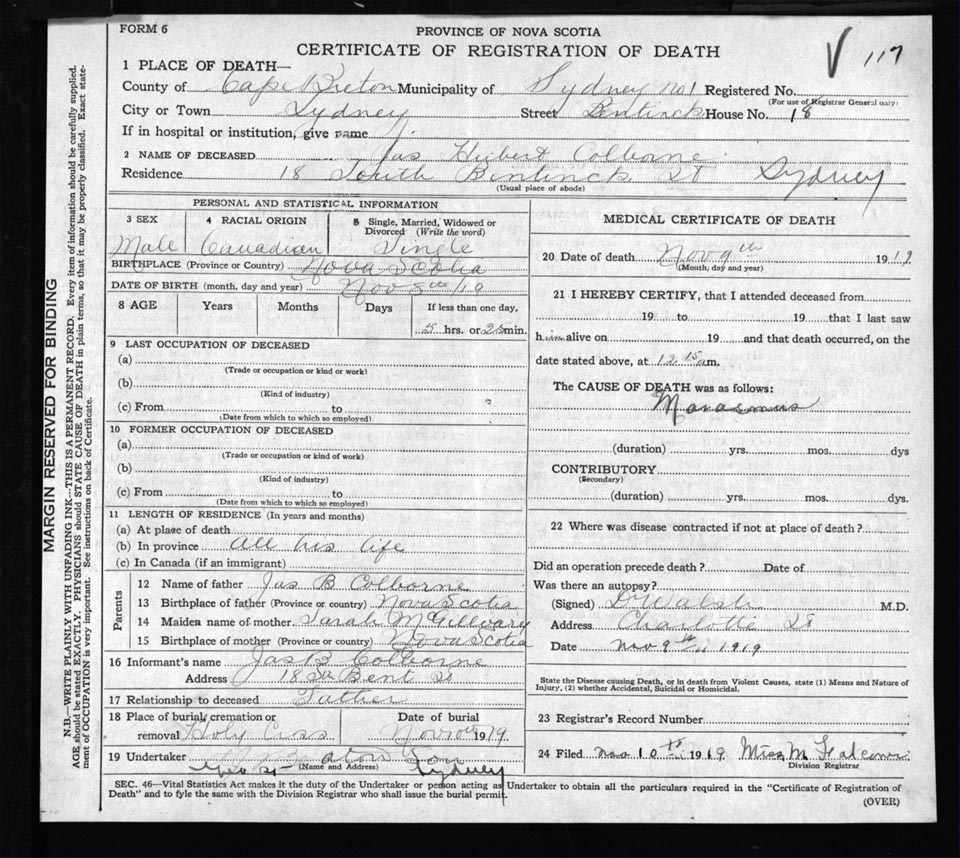 FORM 6
PROVINCE OF NOVA SCOTIA
CERTIFICATE OF REGISTRATION OF DEATH
117
1 PLACE OF DEATH—
County of Cape Breton Municipality of Sydney No 1 Registered No.
(For use of Registrar General only)
City or Town Sydney Street Bentinck House No. 18
If in hospital or institution, give name
2 NAME OF DECEASED Jas Hubert Colborne
Residence 18 South Bentinck St Sydney
(Usual place of abode)
PERSONAL AND STATISTICAL INFORMATION
3 SEX 4 RACIAL ORIGIN 5 Single, Married, Widowed or Divorced (Write the word)
Male Canadian Single
BIRTHPLACE (Province or Country) Nova Scotia
DATE OF BIRTH (month, day and year) Nov 8th /19
8 AGE Years Months Days If less than one day,
5 hrs. or 25 min.
9 LAST OCCUPATION OF DECEASED
(a)
(Trade or occupation or kind or work)
(b)
(Kind of industry)
(c) From to
(Date from which to which so employed)
10 FORMER OCCUPATION OF DECEASED
(a)
(Trade or occupation or kind of work)
(b)
(Kind of industry)
(c) From to
(Date from which to which so employed)
11 LENGTH OF RESIDENCE (In years and months)
(a) At place of death
(b) In province all his life
(c) In Canada (if an immigrant)
Parents
12 Name of father Jas B Colborne
13 Birthplace of father (Province or country) Nova Scotia
14 Maiden name of mother Sarah McGillvary
15 Birthplace of mother (Province or country) Nova Scotia
16 Informant's name Jas B Colborne
Address 18 Bent St
17 Relationship to deceased Father
18 Place of burial, cremation or removal Holy Cross Date of burial Nov 10th 1919.
19 Undertaker
(Name and Address) Sydney
MEDICAL CERTIFICATE OF DEATH
20 Date of death Nov 9th 1919
(Month, day and year)
21 I HEREBY CERTIFY, that I attended deceased from
19 to 19 that I last saw
him alive on 19 and that death occurred, on the
date stated above, at 12 15 am.
The CAUSE OF DEATH was as follows:
Marasmus
(duration) yrs. mos. dys
CONTRIBUTORY
(Secondary)
(duration) yrs. mos. dys.
22 Where was disease contracted if not at place of death?
Did an operation precede death? Date of
Was there an autopsy?
(Signed) D Walsh M.D.
Address Charlotte St
Date Nov 9th 1919
State the Disease causing Death, or in death from Violent Causes, state (1) Means and Nature of
Injury, (2) whether Accidental, Suicidal or Homicidal.
23 Registrar's Record Number
24 Filed Nov 10th 1919 Miss M
Division Registrar
SEC. 46—Vital Statistics Act makes it the duty of the Undertaker or person acting as Undertaker to obtain all the particulars required in the "Certificate of Registration of
Death" and to fyle the same with the Division Registrar who shall issue the burial permit.
(OVER)
MARGIN RESERVED FOR BINDING
N.B.—WRITE PLAINLY WITH UNFADING INK—THIS IS A PERMANENT RECORD. Every item of information should be carefully supplied.
AGE should be stated EXACTLY. PHYSICIANS should STATE CAUSE OF DEATH in plain terms, so that it may be properly classified. Exact state-
ment of OCCUPATION is very important. See instructions on back of Certificate.